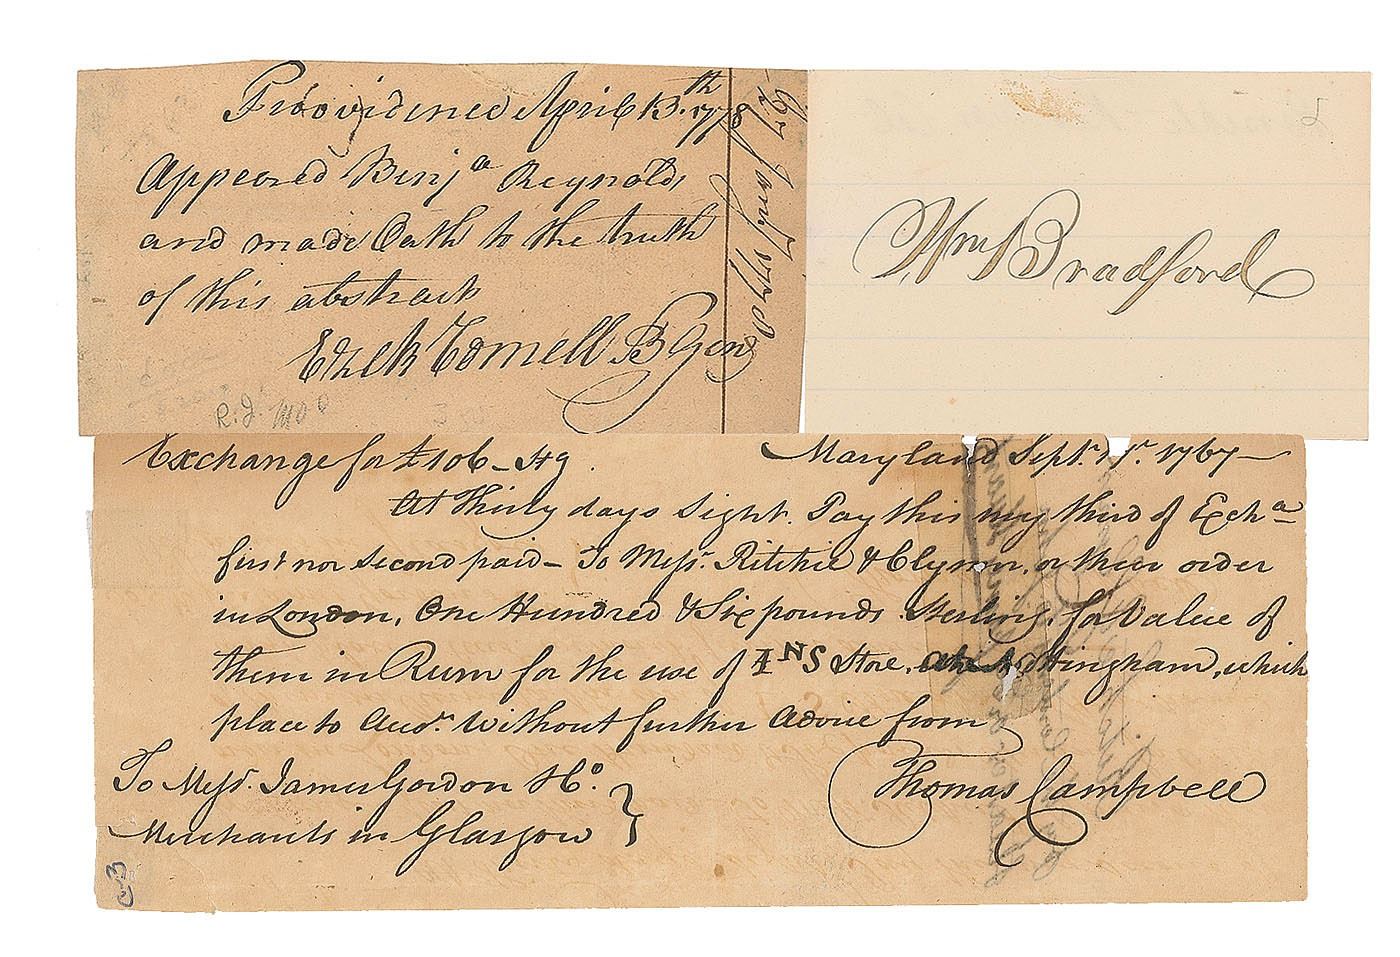 Providence April 13th 1778
Appeared Benja Reynolds
and made Oath to the truth
of this abstract
Ezek Cornell B Gen
R. I.
Wm Bradford
Exchange for £106 - Stg.
Maryland Septr. 17. 1767
At Thirty days Sight. Pay this my third of Excha
first nor Second paid - To Messr. Ritchie & Clymer, or their order
in London, One Hundred & Six pounds Sterling, for Value of
them in Rum for the use of Store, Nottingham, which
place to Acct. Without further Advice from
Thomas Campbell
To Messr. James Gordon & Co.
Merchants in Glasgow